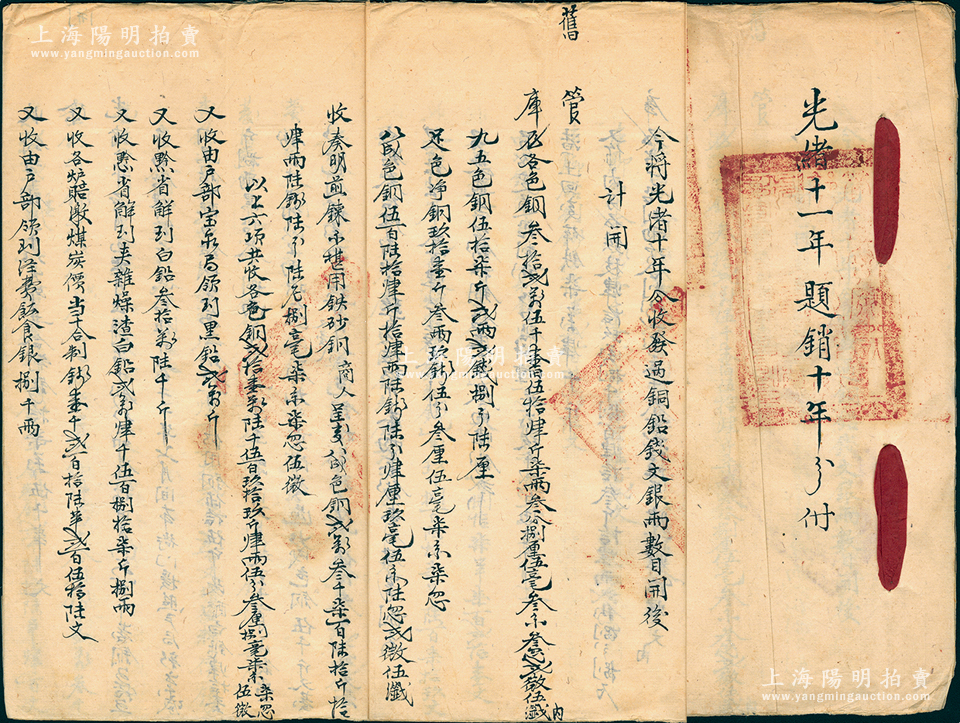 上海陽明拍賣
www.yangmingauction.com
光緒十一年題銷十年分付
今將光緒十年分收發過銅鉛錢文銀兩數目開後
計開
舊管
庫存各色銅叁拾貳萬伍千壹拾伍拾肆斤柒兩叁分捌厘伍毫叁糸叁忽貳微伍纖 内
九五色銅伍拾柒斤貳兩貳錢捌分陸厘
足色凈銅玖拾壹斤叁兩玖錢伍分叁厘伍毫柒糸柒忽
八成色銅伍百陸拾肆斤拾肆兩陸錢陸分肆厘玖毫伍糸陸忽貳微伍纖
收奏明道鍊不堪用鉄砂銅商人呈交八成色銅貳萬叁千柒百陸拾斤拾
肆兩陸錢陸分陸厘捌毫柒糸柒忽伍微
以上六項共收各色銅貳拾壹萬陸千伍百玖拾玖斤肆兩伍分叁厘捌毫柒糸柒忽伍微
又收由户部宝泉局領到黑鉛貳萬斤
又收黔省解到白鉛叁拾萬陸千斤
又收黔省解到夹雜燥渣白鉛貳萬肆千伍百捌拾柒斤捌兩
又收各炉賠缴煤炭價當十合制錢壹千貳百拾陸串貳百伍拾陸文
又收由户部領到經費飯食銀捌千兩
上海陽明拍賣
www.yangmingauction.com